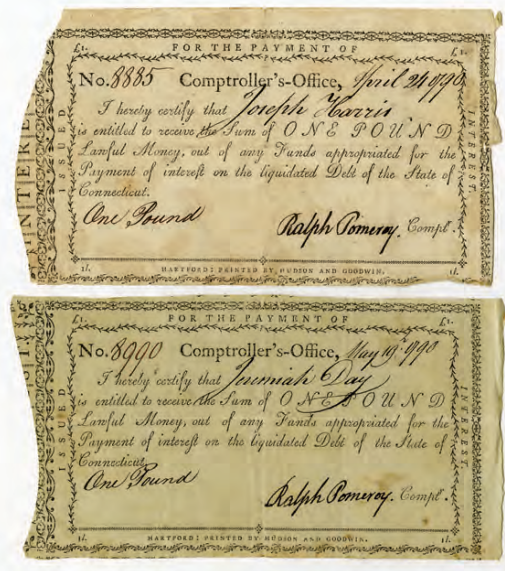 £1. FOR THE PAYMENT OF £1.
No. 8885 Comptroller's-Office, April 24 1790
I hereby certify that Joseph Harris
is entitled to receive the Sum of ONE POUND
Lawful Money, out of any Funds appropriated for the
Payment of interest on the liquidated Debt of the State of
Connecticut.
One Pound
Ralph Pomeroy. Comptr.
1l. HARTFORD: PRINTED BY HUDSON AND GOODWIN. 1l.
ISSUED
INTEREST.
£1. FOR THE PAYMENT OF £1.
No. 8990 Comptroller's-Office, May 19th 1790
I hereby certify that Jeremiah Day
is entitled to receive the Sum of ONE POUND
Lawful Money, out of any Funds appropriated for the
Payment of interest on the liquidated Debt of the State of
Connecticut.
One Pound
Ralph Pomeroy. Comptr.
1l. HARTFORD: PRINTED BY HUDSON AND GOODWIN. 1l.
ISSUED
INTEREST.